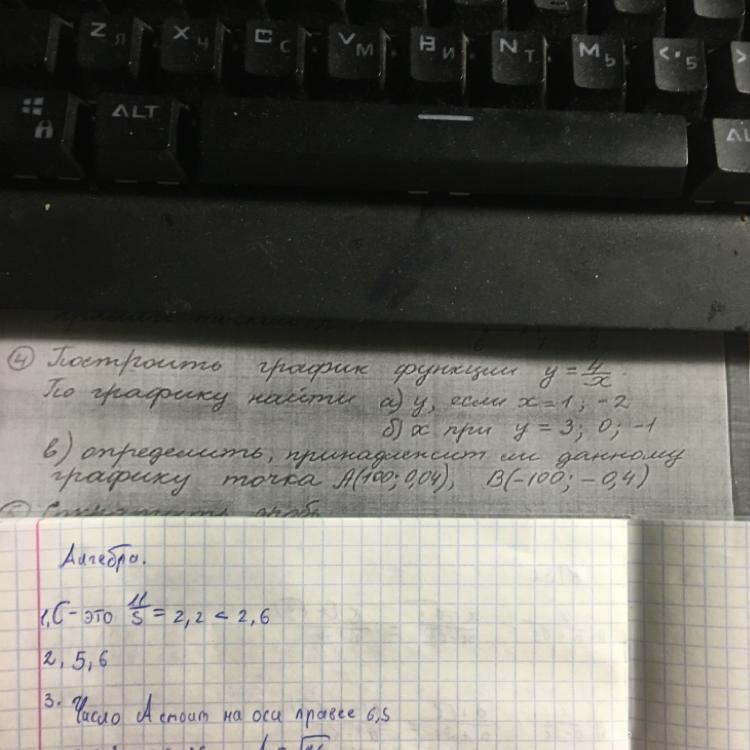 Z Я X Ч C С V М B И N Т M Ь < , 5 >
ALT AL
④ Построить график функции y = 4/x.
По графику найти а) y, если x = 1; -2
б) x при y = 3; 0; -1
в) определить, принадлежит ли данному
графику точка A(100; 0,04), B(-100; -0,4)
Алгебра.
1, C - это 11/5 = 2,2 < 2,6
2, 5, 6
3. Число A стоит на оси правее 6,5